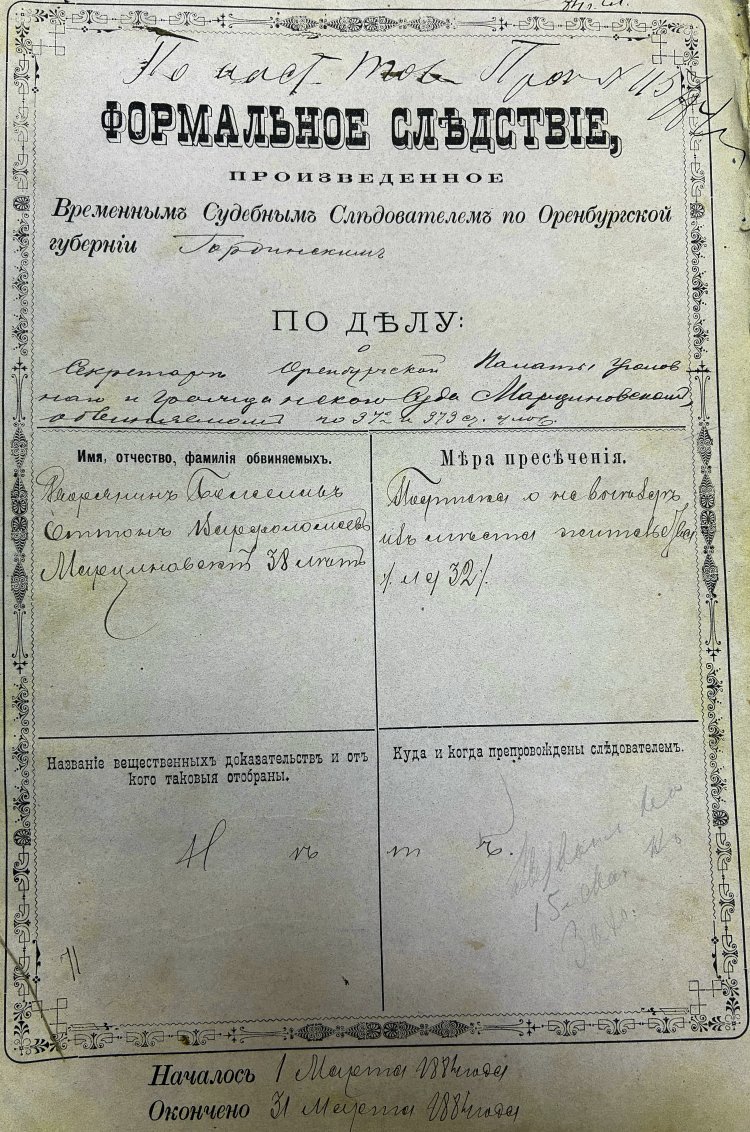 По наст. тов. Прок. N 115
ФОРМАЛЬНОЕ СЛѢДСТВІЕ,
ПРОИЗВЕДЕННОЕ
Временнымъ Судебнымъ Слѣдователемъ по Оренбургской
губерніи
ПО ДѢЛУ:
о
Секретарѣ Оренбургской Палаты Уголов
наго и Гражданскаго Суда Марциновскомъ,
обвиняемомъ по 372 и 373 ст. улож.
Имя, отчество, фамилія обвиняемыхъ.
Дворянинъ
Варфоломеевъ
Марциновскій 38 лѣтъ
Мѣра пресѣченія.
Подписка о не выѣздѣ
изъ мѣста жительства
/. л. 32 /.
Названіе вещественныхъ доказательствъ и отъ
кого таковыя отобраны.
Куда и когда препровождены слѣдователемъ.
Н ѣ т ъ.
Началось 1 Марта 1884 года
Окончено 31 Марта 1884 года